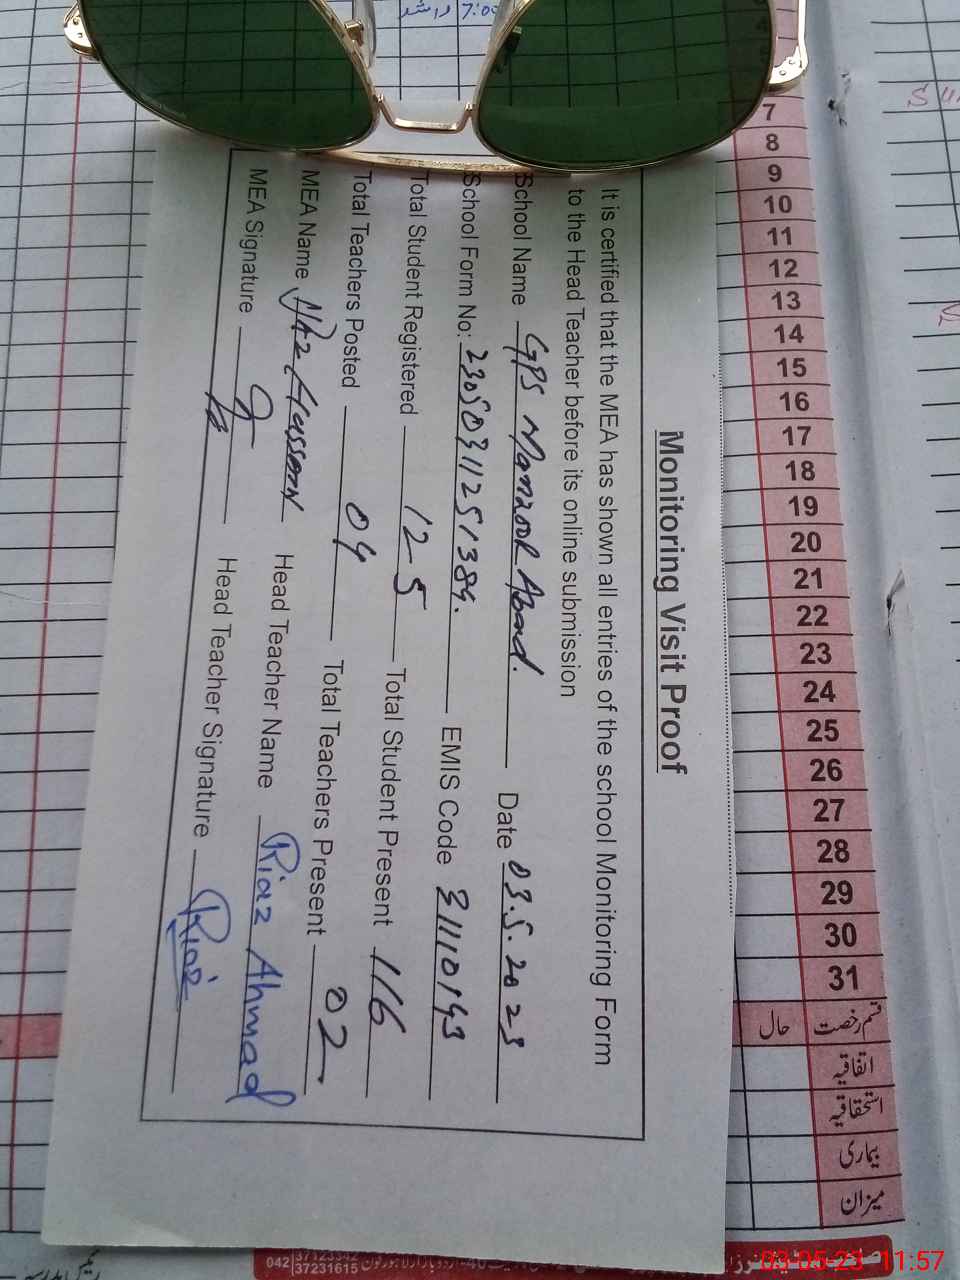 Monitoring Visit Proof
It is certified that the MEA has shown all entries of the school Monitoring Form
to the Head Teacher before its online submission
School Name GPS Manzoor Abad. Date 03.5.2023
School Form No: 23050311251384. EMIS Code 31110143
Total Student Registered 125 Total Student Present 116
Total Teachers Posted 04 Total Teachers Present 02
MEA Name Hassan Head Teacher Name Riaz Ahmad
MEA Signature Head Teacher Signature Riaz
7
8
9
10
11
12
13
14
15
16
17
18
19
20
21
22
23
24
25
26
27
28
29
30
31
قسم رخصت
حال
اتفاقیہ
استحقاقیہ
بیماری
میزان
042 37123342
37231615
03-05-23 11:57